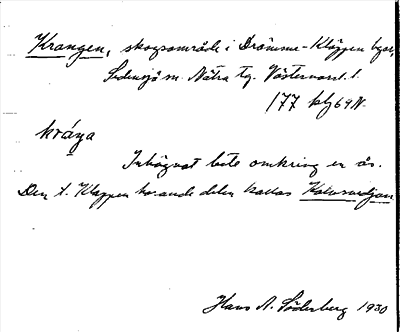 Krangen, skogsområde i Drömme-Kläppen byar,
Sidensjö sn. Nätra tg. Västernorrl. l.
177 blg 69 N.
kråŋa
Inhägnat bete omkring en ås.
Den t. Kläppen hörande delen kallas Kalvsvedjan
Hans A. Söderberg 1930